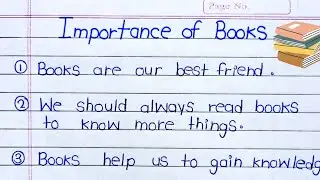 Page No.
Importance of Books
① Books are our best friend.
② We should always read books
to know more things.
③ Books help us to gain knowledg